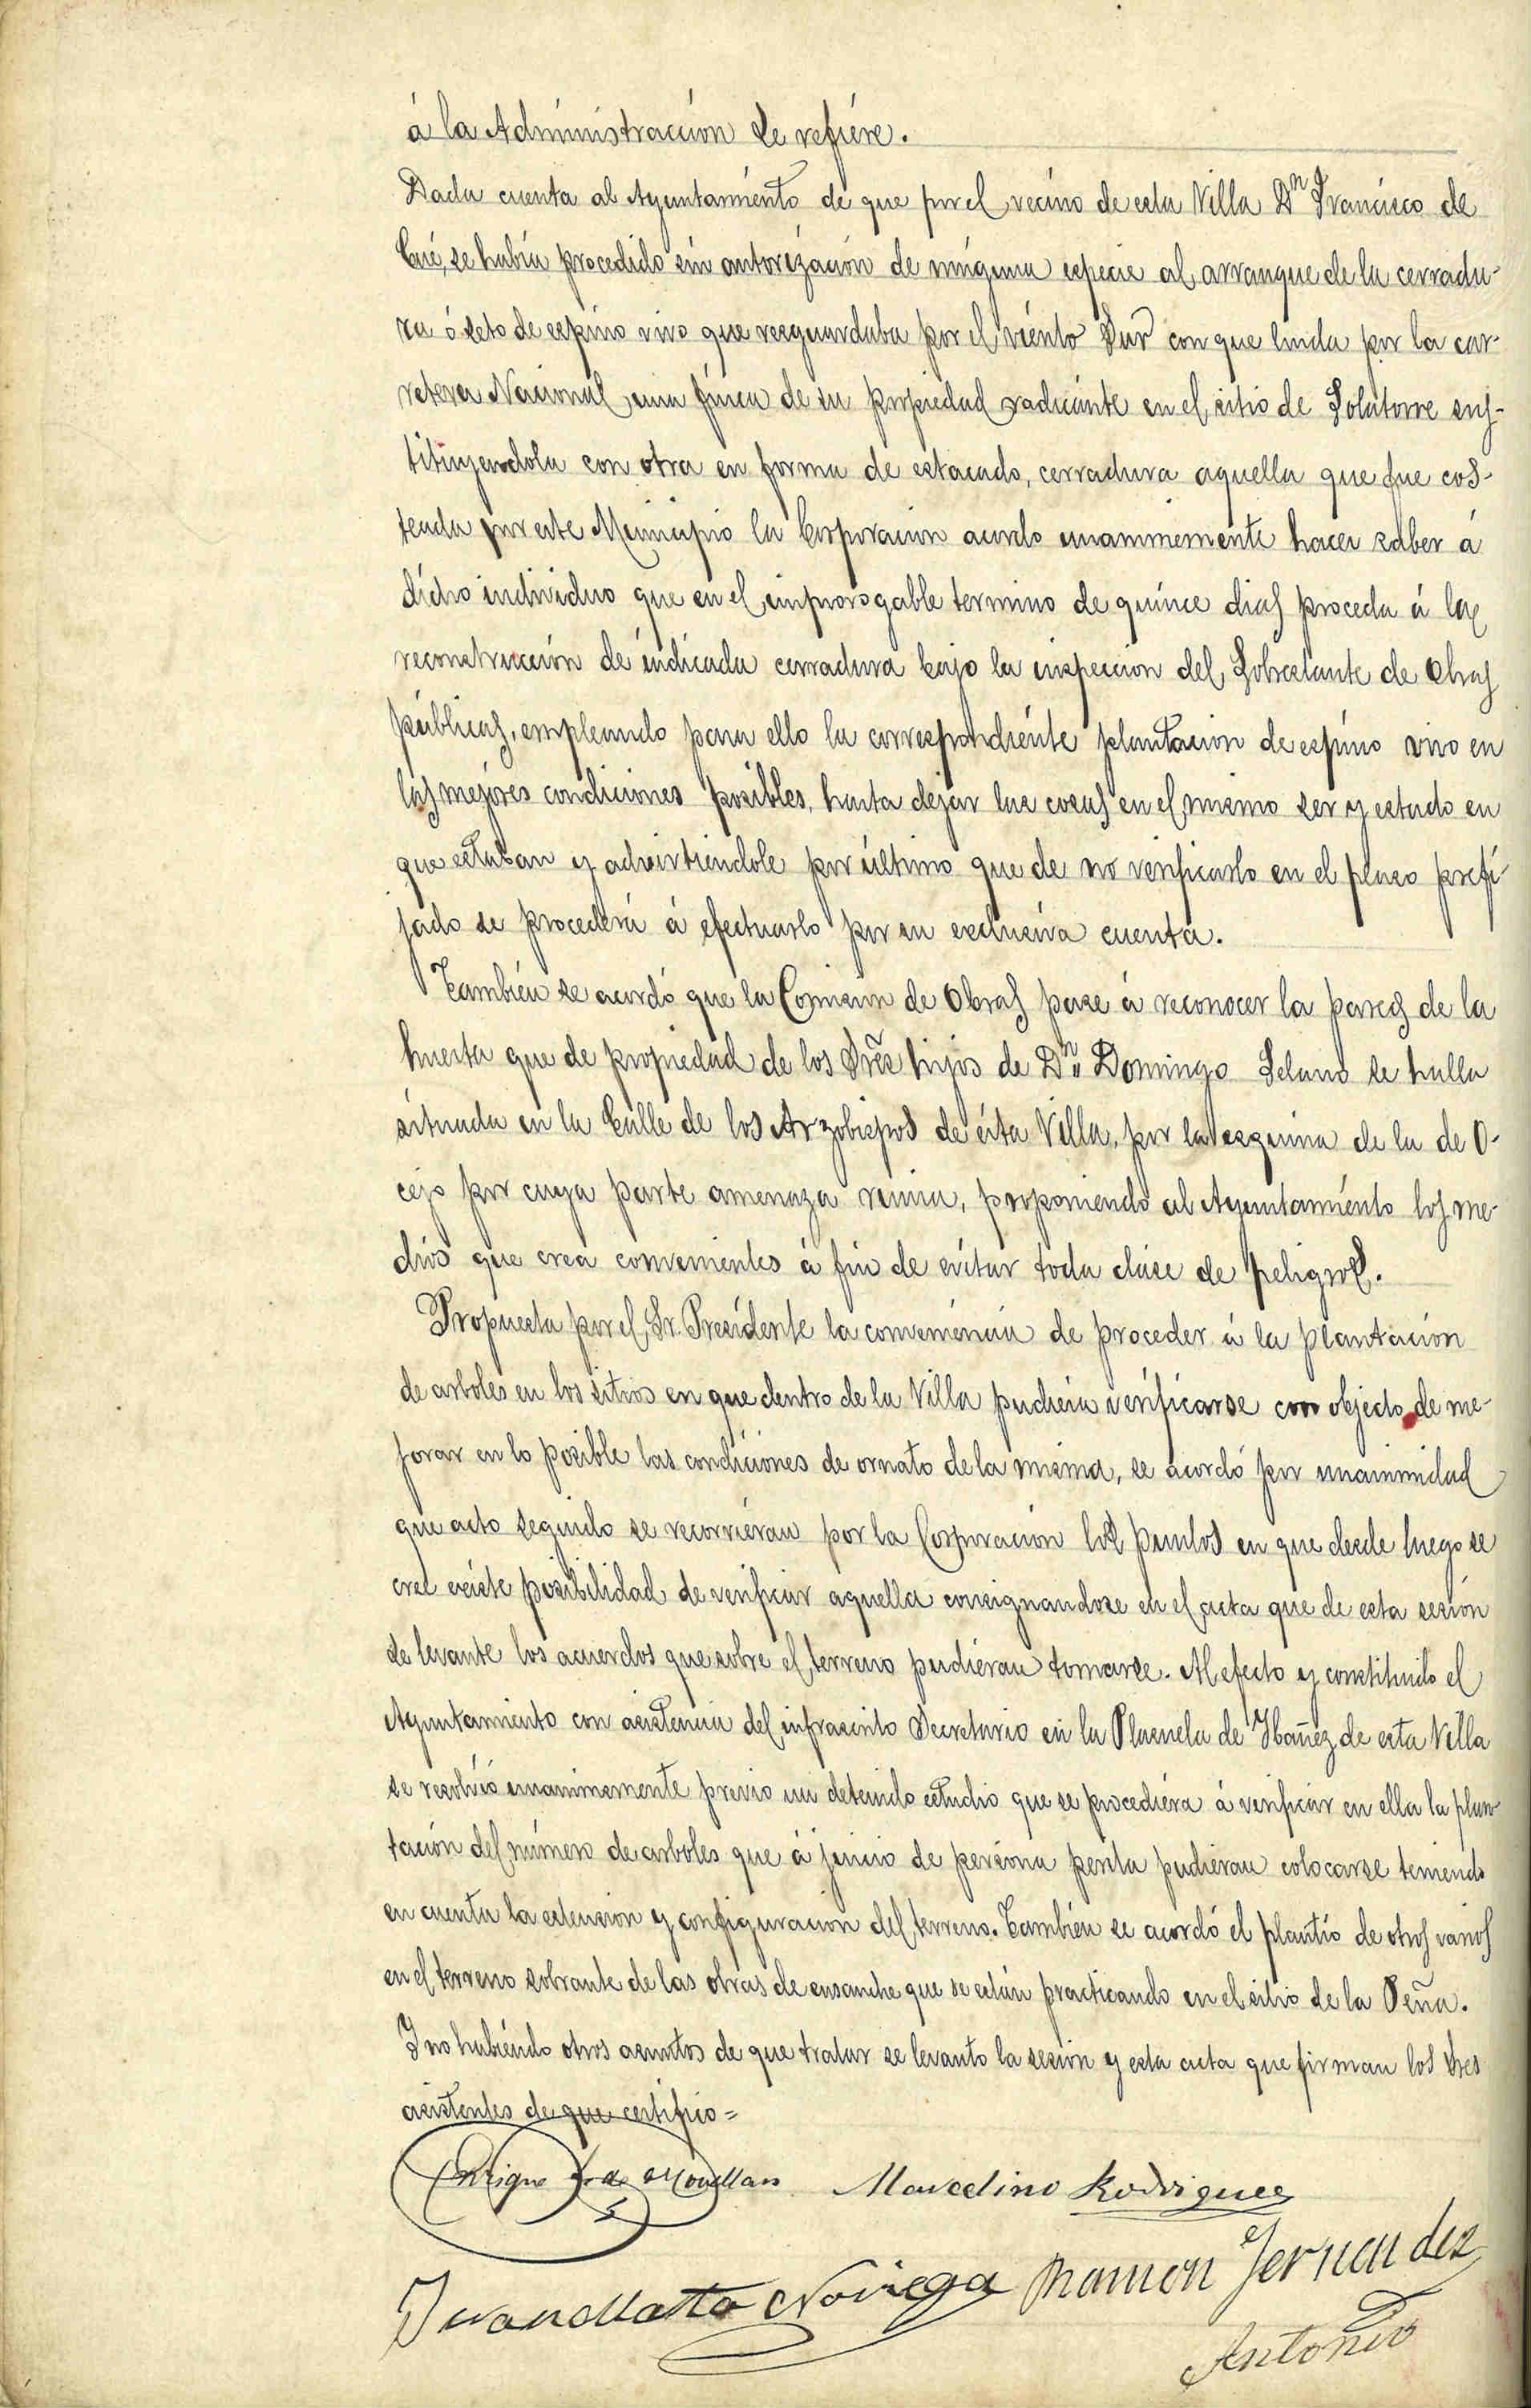 á la Administración se refiére.
Dada cuenta al Ayuntamiento de que por el vecino de esta Villa Dn Francisco de
Cué, se habia procedido sin autorización de ninguna especie al arranque de la cerradu-
ra ó seto de espino vivo que resguardaba por el viénto Sur con que linda por la car-
retera Nacional una finca de su propiedad radicante en el sitio de Solatorre sus-
tituyendola con otra en forma de estacado, cerradura aquella que fue cos-
teada por este Municipio la Corporacion acordo unanimemente hacer saber á
dicho individuo que en el improrogable termino de quince dias proceda á la
reconstrucción de indicada cerradura bajo la inspeccion del Sobrestante de Obras
públicas, empleando para ello la correspondiénte plantacion de espino vivo en
las mejores condiciones posibles, hasta dejar las cosas en el mismo ser y estado en
que estaban y advirtiendole por último que de no verificarlo en el plazo prefi-
jado se procederá á efectuarlo por su exclusiva cuenta.
Tambiéu se acordó que la Comision de Obras pase á reconocer la pared de la
huerta que de propiedad de los Sres hijos de Dn Domingo Selano se halla
situada en la Calle de los Arzobispos de ésta Villa, por la esquina de la de O-
cejo por cuya parte amenaza ruina, proponiendo al Ayuntamiénto los me-
dios que crea convenientes á fin de evitar toda clase de peligros.
Propuesta por el Sr. Presidente la conveniéncia de proceder á la plantación
de arboles en los sitios en que dentro de la Villa pudiera verificarse con objecto de me-
jorar en lo posible las condiciones de ornato de la misma, se acordó por unanimidad
que acto seguido se recorriéran por la Corporación los puntos en que desde luego se
cree existe posibilidad de verificar aquella consignandose en el acta que de esta sesión
se levante los acuerdos que sobre el terreno pudiéran tomarse. Al efecto y constituido el
Ayuntamiento con asistencia del infrascrito Secretario en la Plazuela de Ibañez de esta Villa
se resolvió unanimemente previo un detenido estudio que se procediéra á verificar en ella la plan-
tación del número de arboles que á juicio de persona perita pudiéran colocarse teniendo
en cuenta la extension y configuracion del terreno. Tambiéu se acordó el plantío de otros varios
en el terreno sobrante de las obras de ensanche que se están practicando en el sitio de la Peña.
I no habiéndo otros asuntos de que tratar se levanto la sesion y esta acta que firman los Sres
asistentes de que certifico =
Enrique de Mouellan Marcelino Rodriguez
Juan Matta Noriega Ramon Fernandez
Antonio